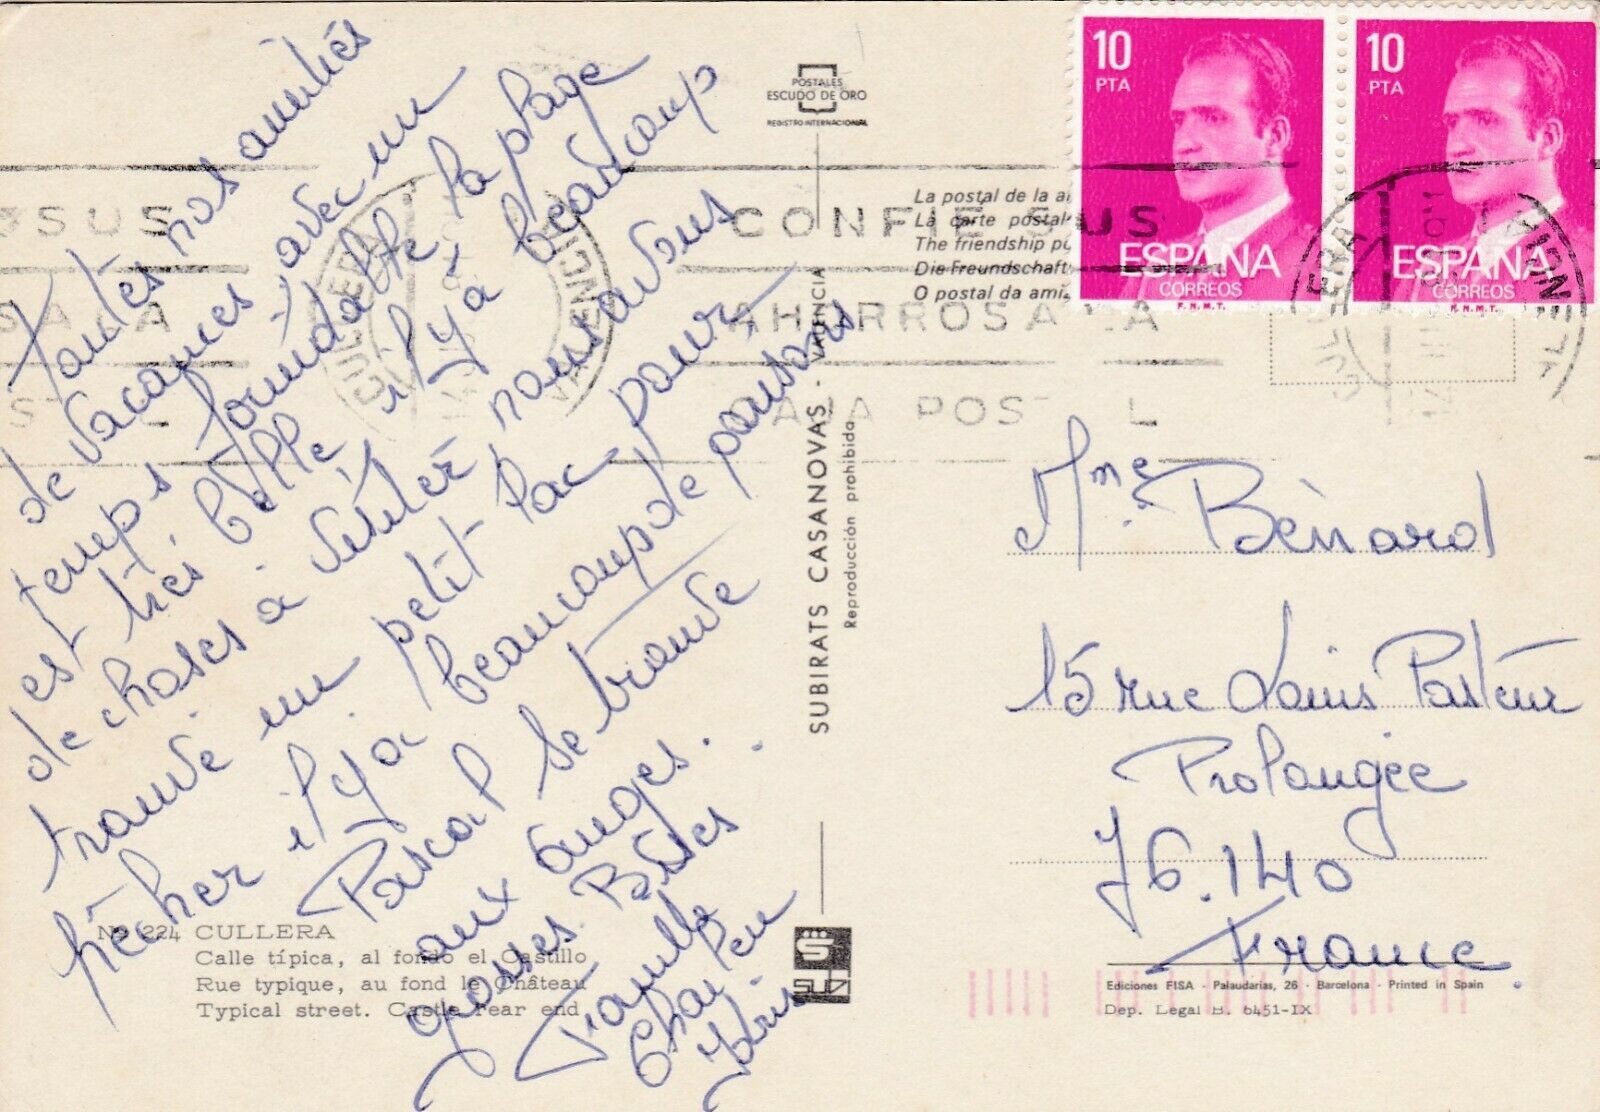 Toutes nos amitiés
de vacances, avec un
temps formidable, la plage
est très belle, il y a beaucoup
de choses a visiter nous avons
trouvé un petit lac pour
pêcher il y a beaucoup de poissons
Pascal se trouve
aux anges.
grosses Bises
Famille
Nº 224 CULLERA
Calle típica, al fondo el Castillo
Rue typique, au fond le Château
Typical street. Castle rear end
POSTALES
ESCUDO DE ORO
REGISTRO INTERNACIONAL
La postal de la
La carte postal
The friendship
Die Freundschaft
O postal da
SUBIRATS CASANOVAS - VALENCIA
Reproducción prohibida
10
PTA
ESPAÑA
CORREOS
F.N.M.T.
10
PTA
ESPAÑA
CORREOS
F.N.M.T.
CONFIE SUS
AHORROS A LA
CAJA POSTAL
CULLERA
VALENCIA
Mme Bènard
15 rue Louis Pasteur
Prolongée
76.140
France
Ediciones FISA - Palaudarias, 26 - Barcelona - Printed in Spain
Dep. Legal B. 6451-IX